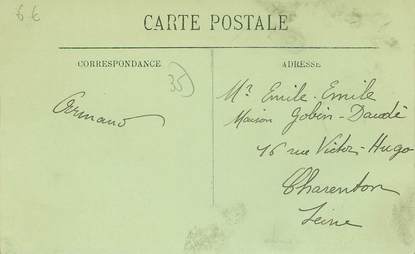 6 €
CARTE POSTALE
CORRESPONDANCE
ADRESSE
35
Armand
Mr Emile-Emile
Maison Gobin-Daudé
16 rue Victor-Hugo
Charenton
Seine